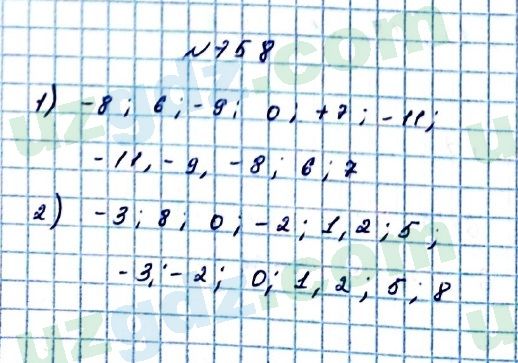 №758
1) -8; 6; -9; 0; +7; -11;
-11, -9, -8; 6; 7
2) -3; 8; 0; -2; 1,2; 5;
-3; -2; 0; 1,2; 5; 8
uzgdz.com